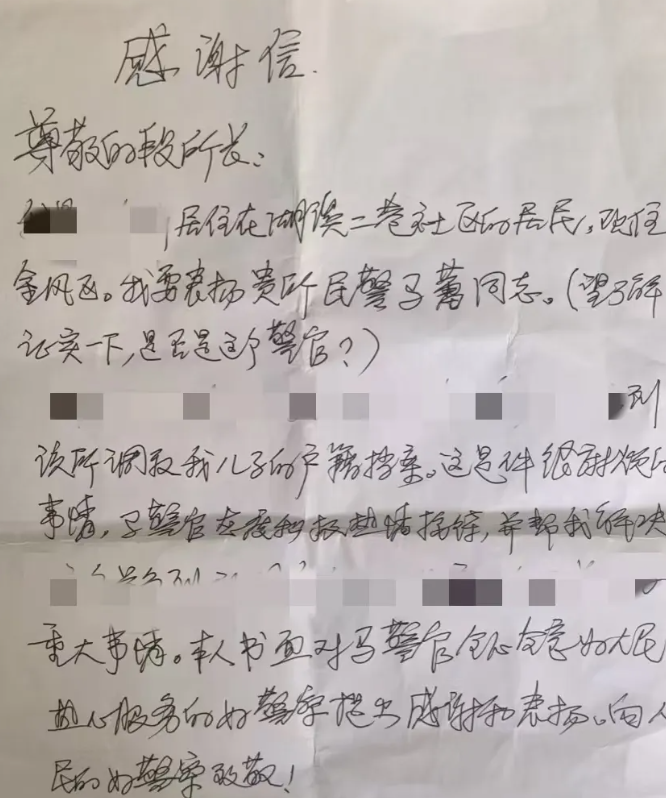 感谢信
尊敬的段所长:
居住在湖滨二巷社区的居民,现住
金凤区。我要表扬贵所民警马蕾同志。(望了解
证实一下,是否是这个警官?)
到
该所调取我儿子的户籍档案。这是件很耐烦的
事情,马警官态度积极热情接待,并帮我解决
重大事情。本人书面对马警官全心全意为人民
热心服务的好警察提出感谢和表扬。向人
民的好警察致敬!